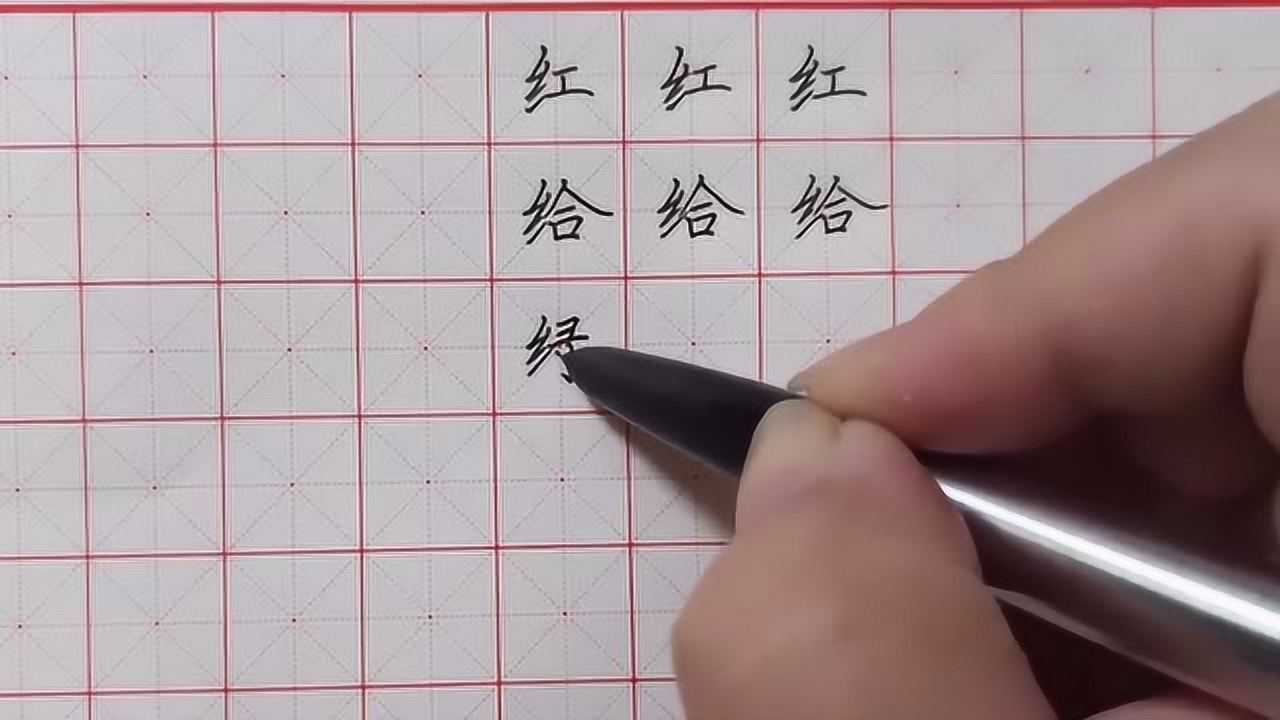 红 红 红
给 给 给
绿